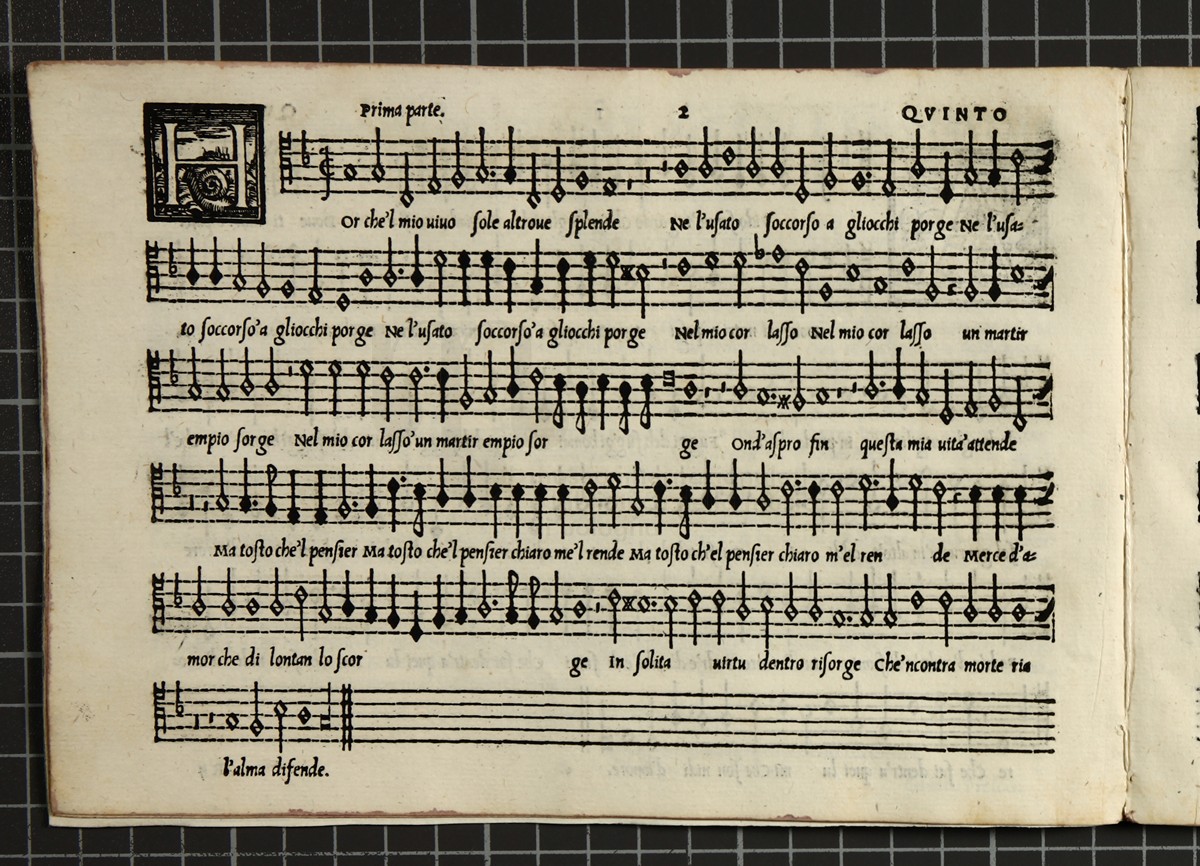 Prima parte. 2 QVINTO
HOr che'l mio uiuo sole altroue splende Ne l'usato soccorso a gliocchi porge Ne l'usa-
to soccorso'a gliocchi porge Ne l'usato soccorso'a gliocchi porge Nel mio cor lasso Nel mio cor lasso un martir
empio sorge Nel mio cor lasso'un martir empio sor ge Ond'aspro fin questa mia uita'attende
Ma tosto che'l pensier Ma tosto che'l pensier chiaro me'l rende Ma tosto ch'el pensier chiaro m'el ren de Merce d'a-
mor che di lontan lo scor ge In solita uirtu dentro risorge Che'ncontra morte ria
l'alma difende.